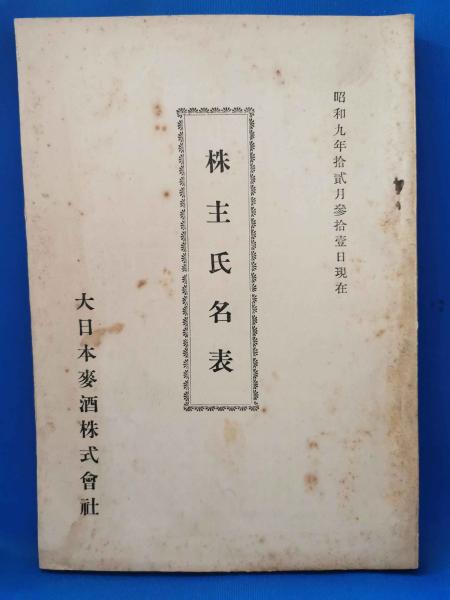 昭和九年拾貳月參拾壹日現在
株主氏名表
大日本麥酒株式會社